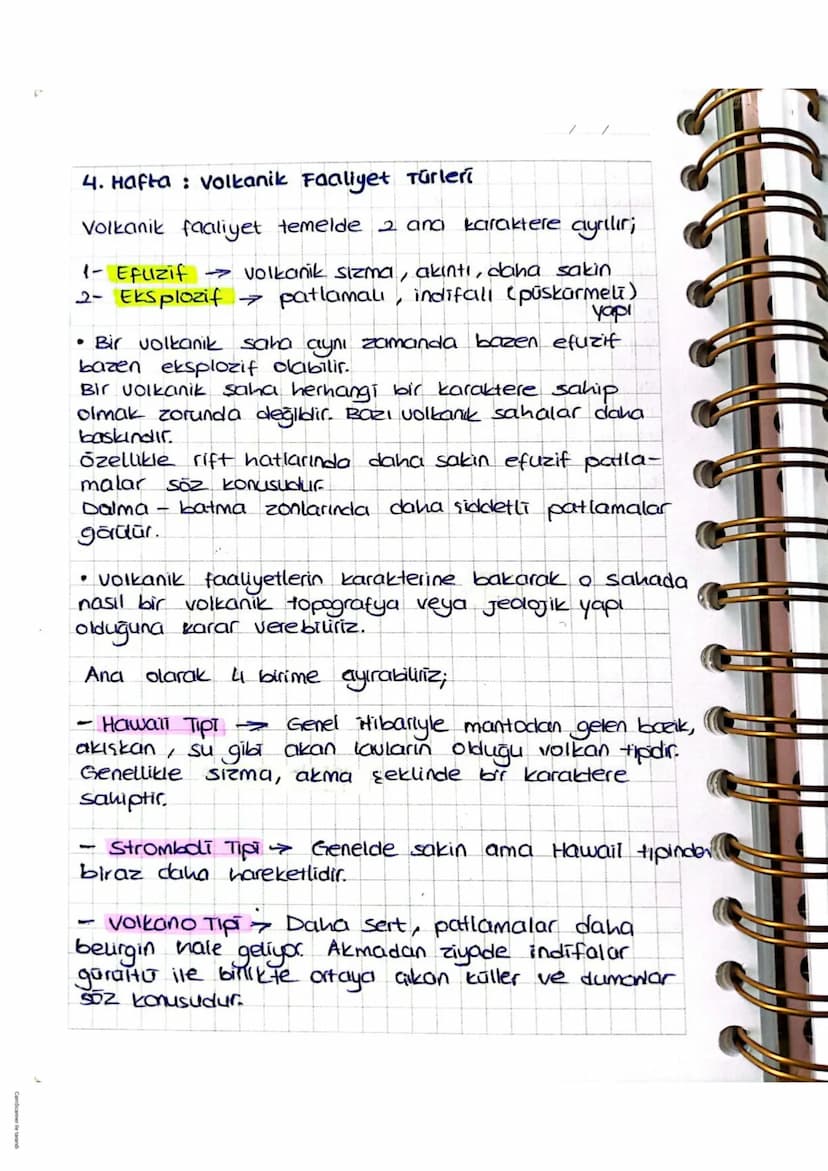 / /
4. Hafta : Volkanik Faaliyet Türleri
Volkanik faaliyet temelde 2 ana karaktere ayrılır;
1- Efuzif → volkanik sızma, akıntı, daha sakin
2- Eksplozif → patlamalı, indifalı (püskürmeli)
yapı
• Bir volkanik saha aynı zamanda bazen efuzif
bazen eksplozif olabilir.
Bir volkanik saha herhangi bir karaktere sahip
olmak zorunda değildir. Bazı volkanik sahalar daha
baskındır.
Özellikle rift hatlarında daha sakin efuzif patla-
malar söz konusudur.
Dalma - batma zonlarında daha şiddetli patlamalar
görülür.
• Volkanik faaliyetlerin karakterine bakarak o sahada
nasıl bir volkanik topografya veya jeolojik yapı
olduğuna karar verebiliriz.
Ana olarak 4 birime ayırabiliriz;
- Hawaii Tipi → Genel itibariyle mantodan gelen bazik,
akışkan, su gibi akan lavların olduğu volkan tipidir.
Genellikle sızma, akma şeklinde bir karaktere
sahiptir.
- Stromboli Tipi → Genelde sakin ama Hawaii tipinden
biraz daha hareketlidir.
- Volkano Tipi → Daha sert, patlamalar daha
belirgin hale geliyor. Akmadan ziyade indifalar
gürültü ile birlikte ortaya çıkan küller ve dumanlar
söz konusudur.
CamScanner ile tarandı